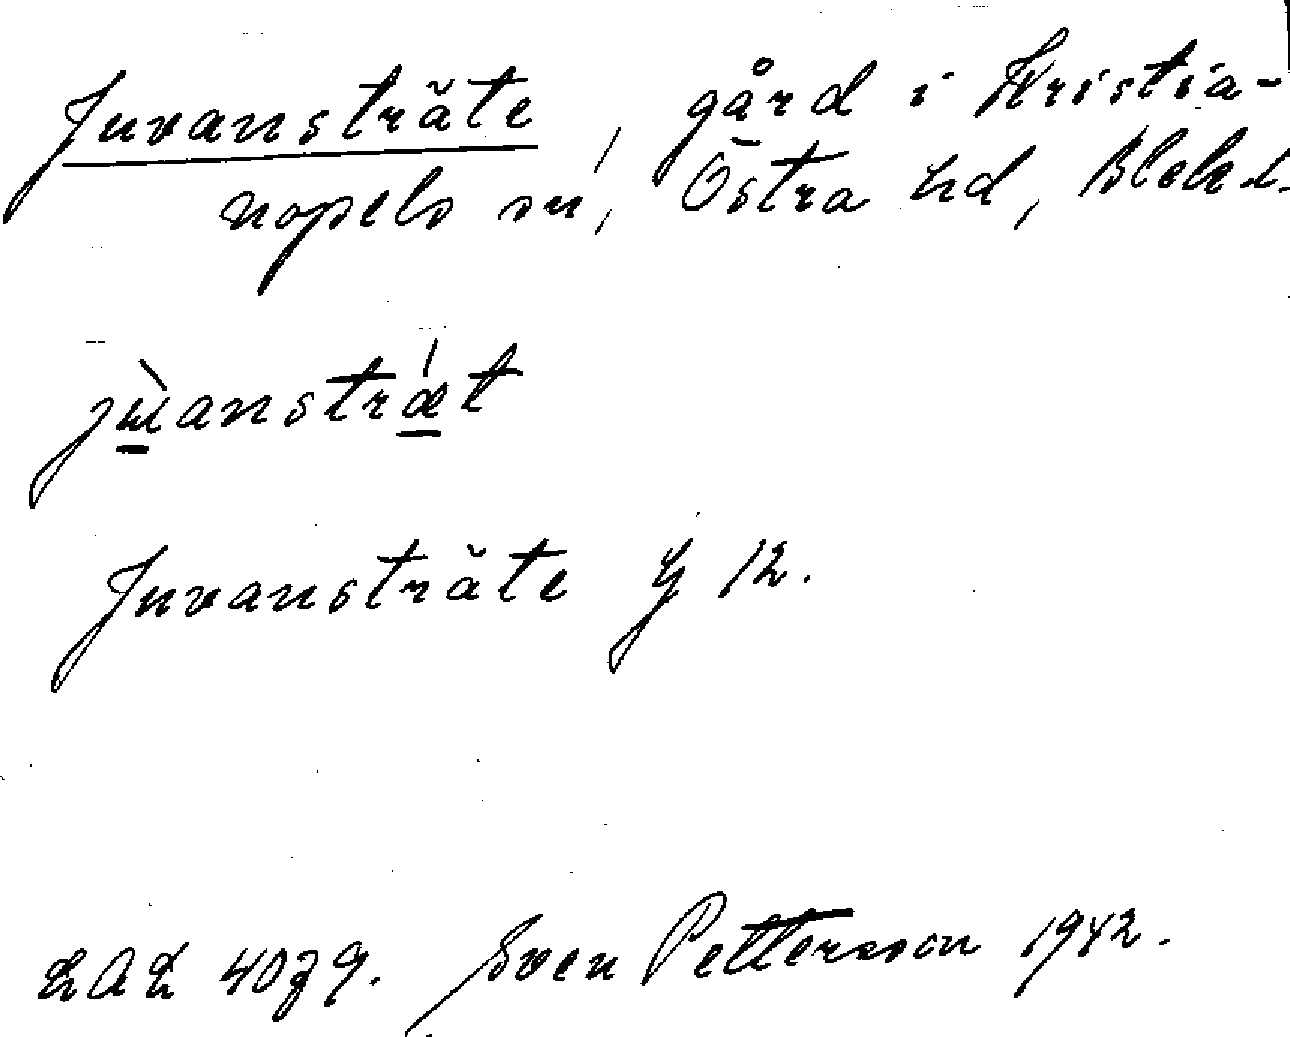 Juvansträte, gård i Kristia-
nopels sn, Östra hd, Blek.
jɯ̀anstrǽt
Juvansträte G 12.
LAL 4079. Sven Pettersson 1942.